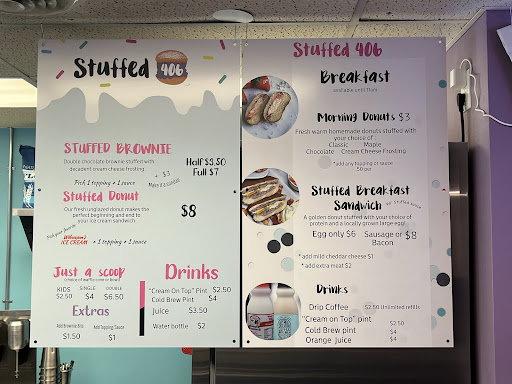 Stuffed 406
STUFFED BROWNIE
Double chocolate brownie stuffed with
decadent cream cheese frosting.
Half $3.50
Full $7
Pick 1 topping + 1 sauce
+ $3
Make it a sundae
Stuffed Donut
Our fresh unglazed donut makes the
perfect beginning and end to
your ice cream sandwich.
$8
Pick your favorite
Wilcoxson's
ICE CREAM
+ 1 topping + 1 sauce
Just a scoop
(choice of waffle cone or bowl)
KIDS SINGLE DOUBLE
$2.50 $4 $6.50
Extras
Add brownie bits Add Topping/Sauce
$1.50 $1
Drinks
"Cream On Top" Pint $2.50
Cold Brew Pint $4
Juice $3.50
Water bottle $2
Stuffed 406
Breakfast
available until 11am
Morning Donuts $3
Fresh warm homemade donuts stuffed with
your choice of :
Classic Maple
Chocolate Cream Cheese Frosting
*add any topping or sauce
50 per
Stuffed Breakfast
Sandwich
A golden donut stuffed with your choice of
protein and a locally grown large egg!
Egg only $6 Sausage or $8
Bacon
* add mild cheddar cheese $1
* add extra meat $2
Drinks
Drip Coffee $2.50 Unlimited refills
"Cream on Top" pint $2.50
Cold Brew pint $4
Orange Juice $4